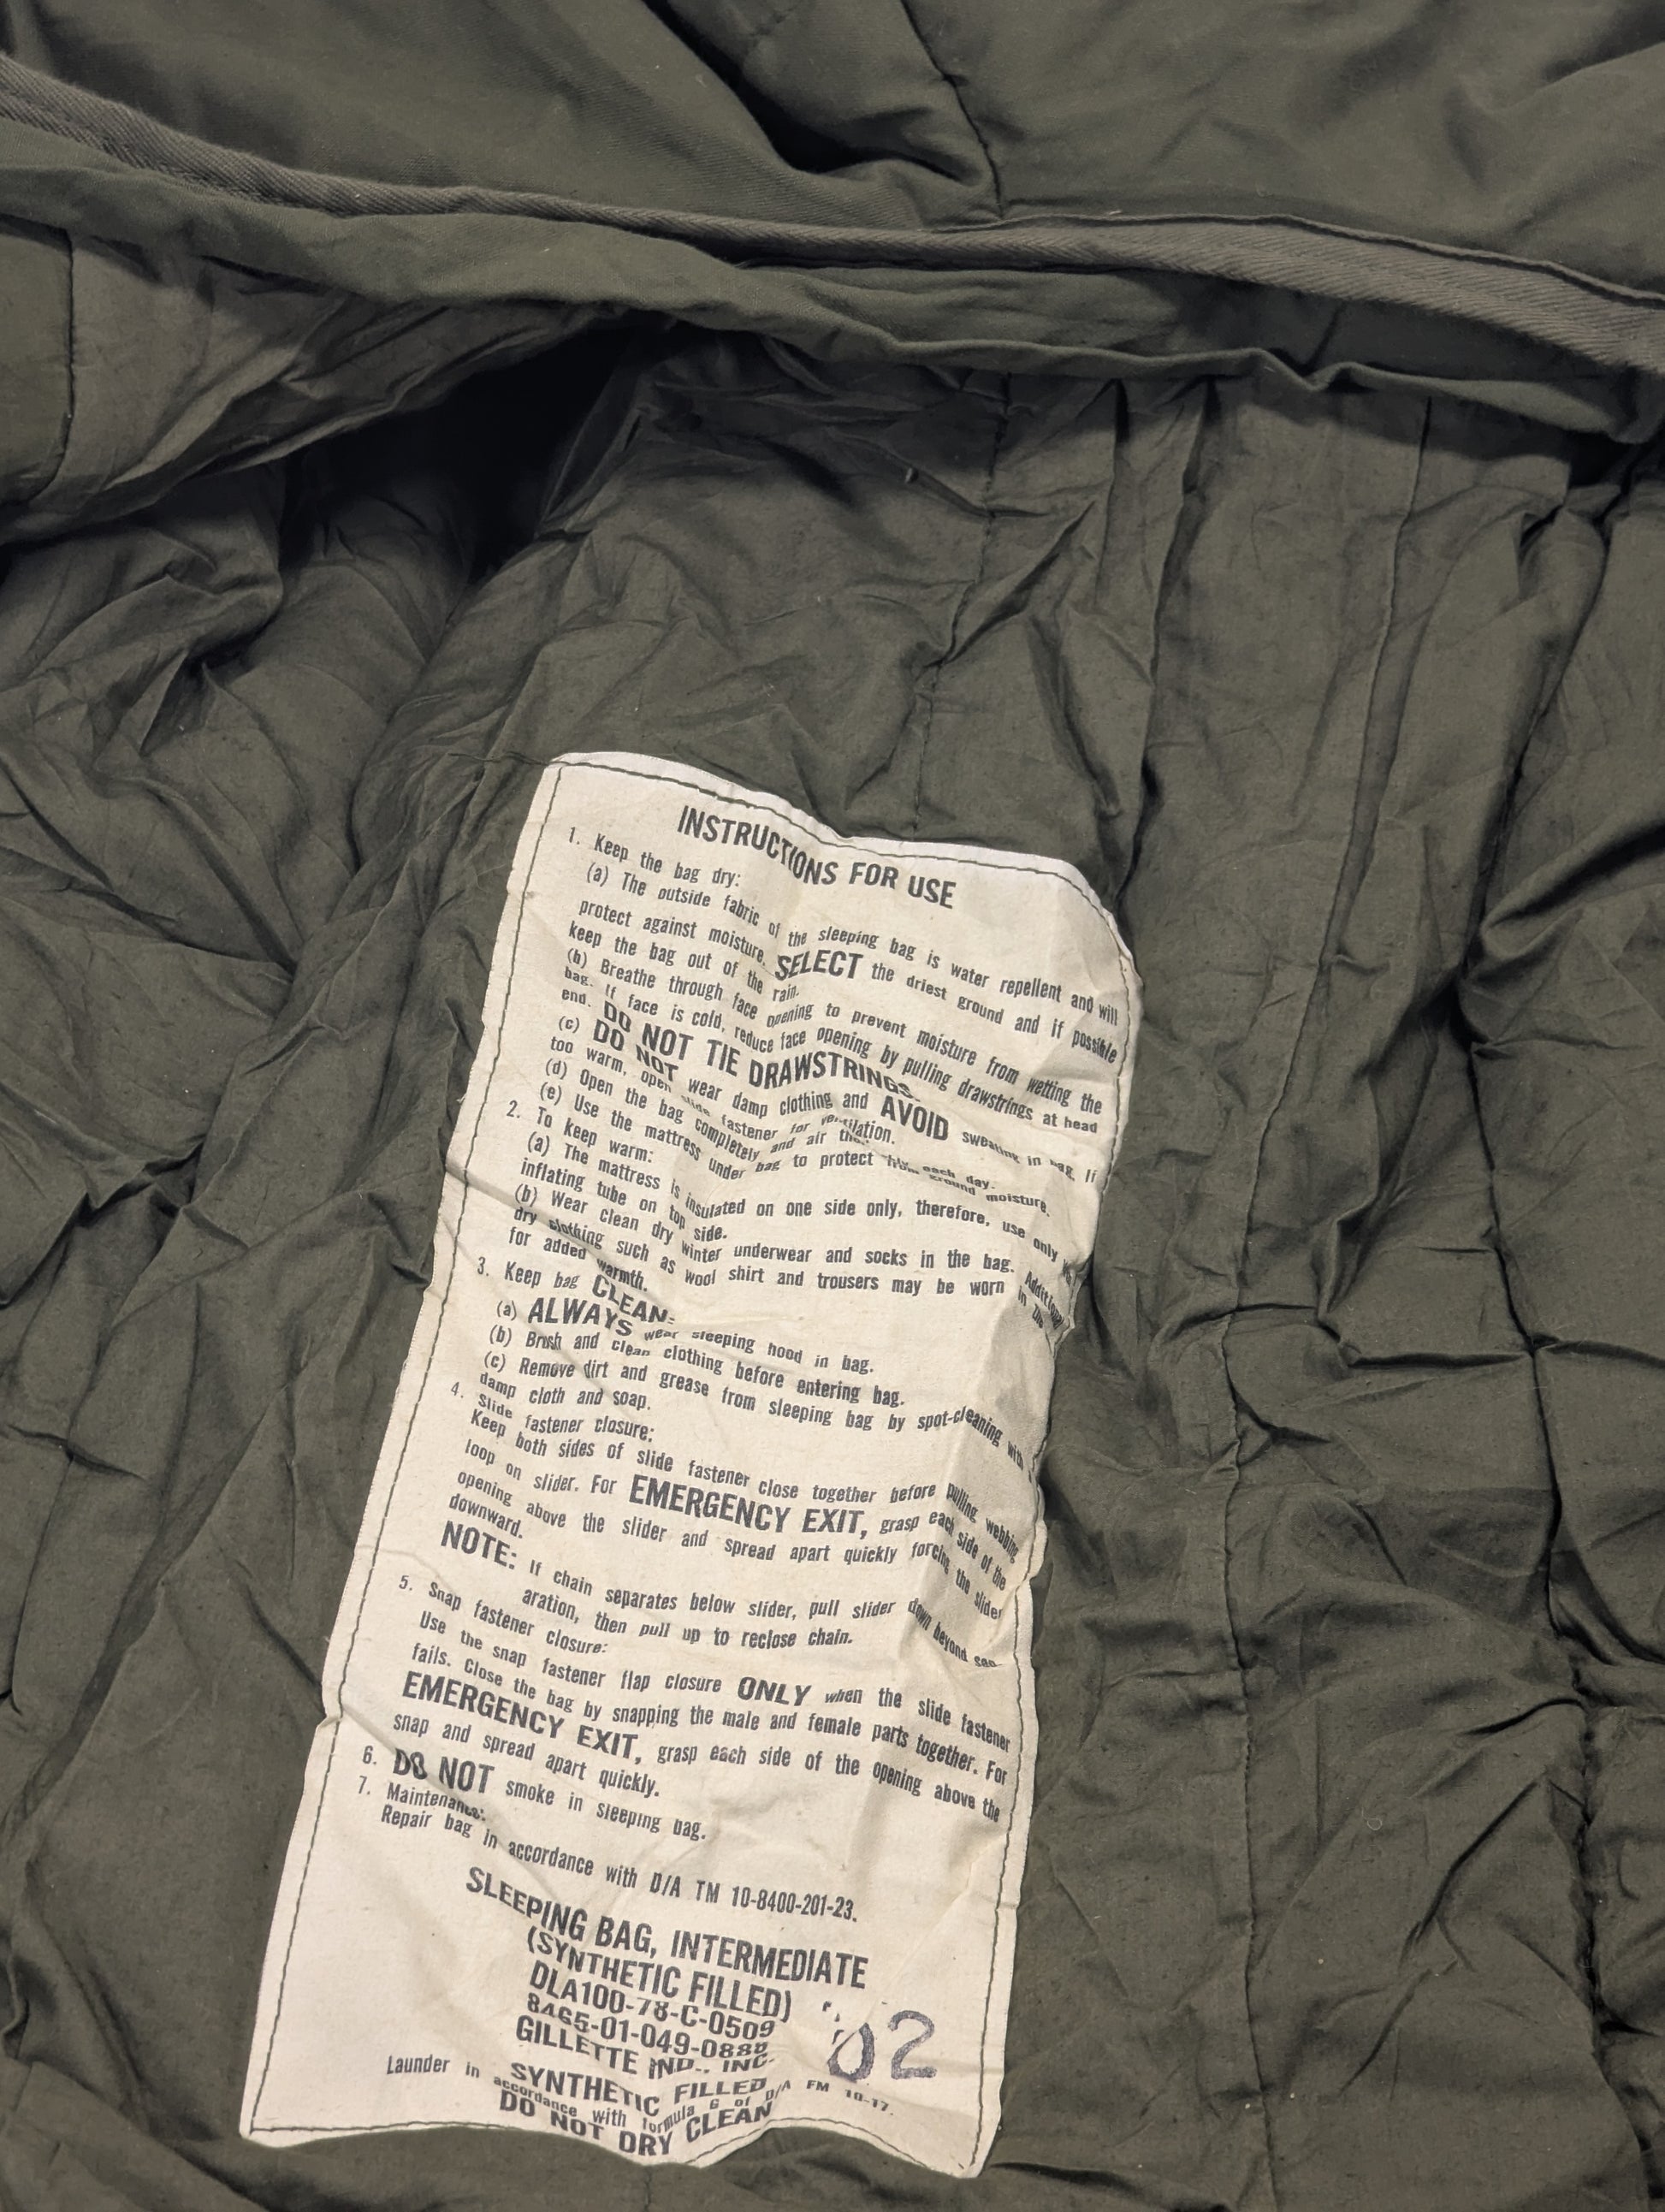 INSTRUCTIONS FOR USE
1. Keep the bag dry:
(a) The outside fabric of the sleeping bag is water repellent and will
protect against moisture. SELECT the driest ground and if possible
keep the bag out of the rain.
(b) Breathe through face opening to prevent moisture from wetting the
bag. If face is cold, reduce face opening by pulling drawstrings at head
end. DO NOT TIE DRAWSTRINGS.
(c) DO NOT wear damp clothing and AVOID sweating in bag. If
too warm, open slide fastener for ventilation.
(d) Open the bag completely and air each day.
(e) Use the mattress under bag to protect from ground moisture.
2. To keep warm:
(a) The mattress is insulated on one side only, therefore, use only
inflating tube on top side.
(b) Wear clean dry winter underwear and socks in the bag. Additional
dry clothing such as wool shirt and trousers may be worn in the
for added warmth.
3. Keep bag CLEAN:
(a) ALWAYS wear sleeping hood in bag.
(b) Brush and clean clothing before entering bag.
(c) Remove dirt and grease from sleeping bag by spot-cleaning with
damp cloth and soap.
4. Slide fastener closure:
Keep both sides of slide fastener close together before pulling webbing
loop on slider. For EMERGENCY EXIT, grasp each side of the
opening above the slider and spread apart quickly forcing the slider
downward.
NOTE: If chain separates below slider, pull slider down beyond sep-
aration, then pull up to reclose chain.
5. Snap fastener closure:
Use the snap fastener flap closure ONLY when the slide fastener
fails. Close the bag by snapping the male and female parts together. For
EMERGENCY EXIT, grasp each side of the opening above the
snap and spread apart quickly.
6. DO NOT smoke in sleeping bag.
7. Maintenance:
Repair bag in accordance with D/A TM 10-8400-201-23.
SLEEPING BAG, INTERMEDIATE
(SYNTHETIC FILLED)
DLA100-78-C-0509
8465-01-049-0888
GILLETTE IND., INC.
02
SYNTHETIC FILLED
Launder in accordance with formula G of D/A FM 10-17.
DO NOT DRY CLEAN